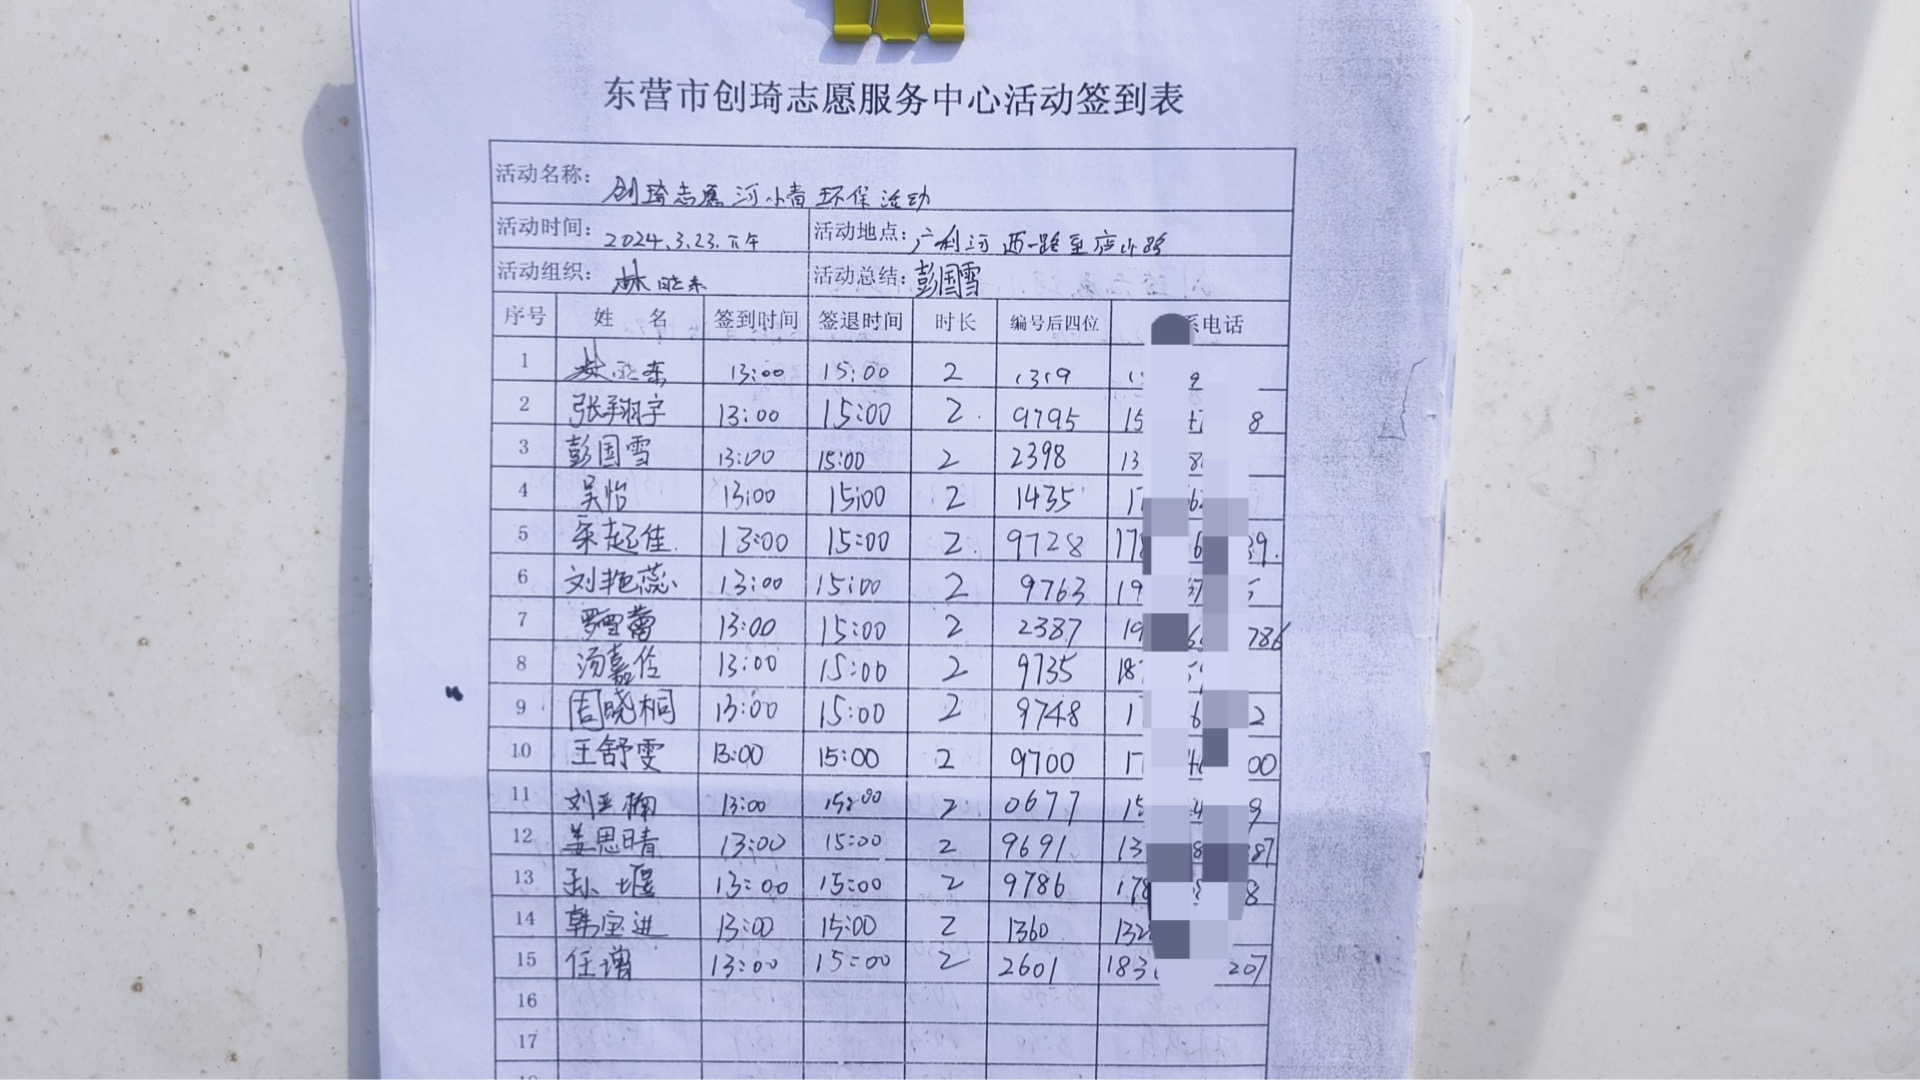 东营市创琦志愿服务中心活动签到表
活动名称: 创琦志愿河小青环保活动
活动时间: 2024.3.23.下午 活动地点: 广利河西一路至庐山路
活动组织: 林晓东 活动总结: 彭国雪
序号 姓 名 签到时间 签退时间 时长 编号后四位 系电话
1 林晓东 13:00 15:00 2 1319
2 张翔宇 13:00 15:00 2. 9795 15 8
3 彭国雪 13:00 15:00 2 2398 13 8
4 吴怡 13:00 15:00 2 1435 17 6
5 宋起佳. 13:00 15:00 2. 9728 178 6 39.
6 刘艳蕊 13:00 15:00 2 9763 19 37
7 罗雪蕾 13:00 15:00 2 2387 19 6 786
8 汤嘉伶 13:00 15:00 2 9735 18
9 周晓桐 13:00 15:00 2 9748 1 6 2
10 王舒雯 13:00 15:00 2 9700 17 4 00
11 刘亚楠 13:00 15:00 2 0677 15 4 9
12 姜思晴 13:00 15:00 2 9691 13 8 87
13 孙堰 13:00 15:00 2 9786 178 8
14 韩宝进 13:00 15:00 2 1360 132
15 任增 13:00 15:00 2 2601 183 207
16
17